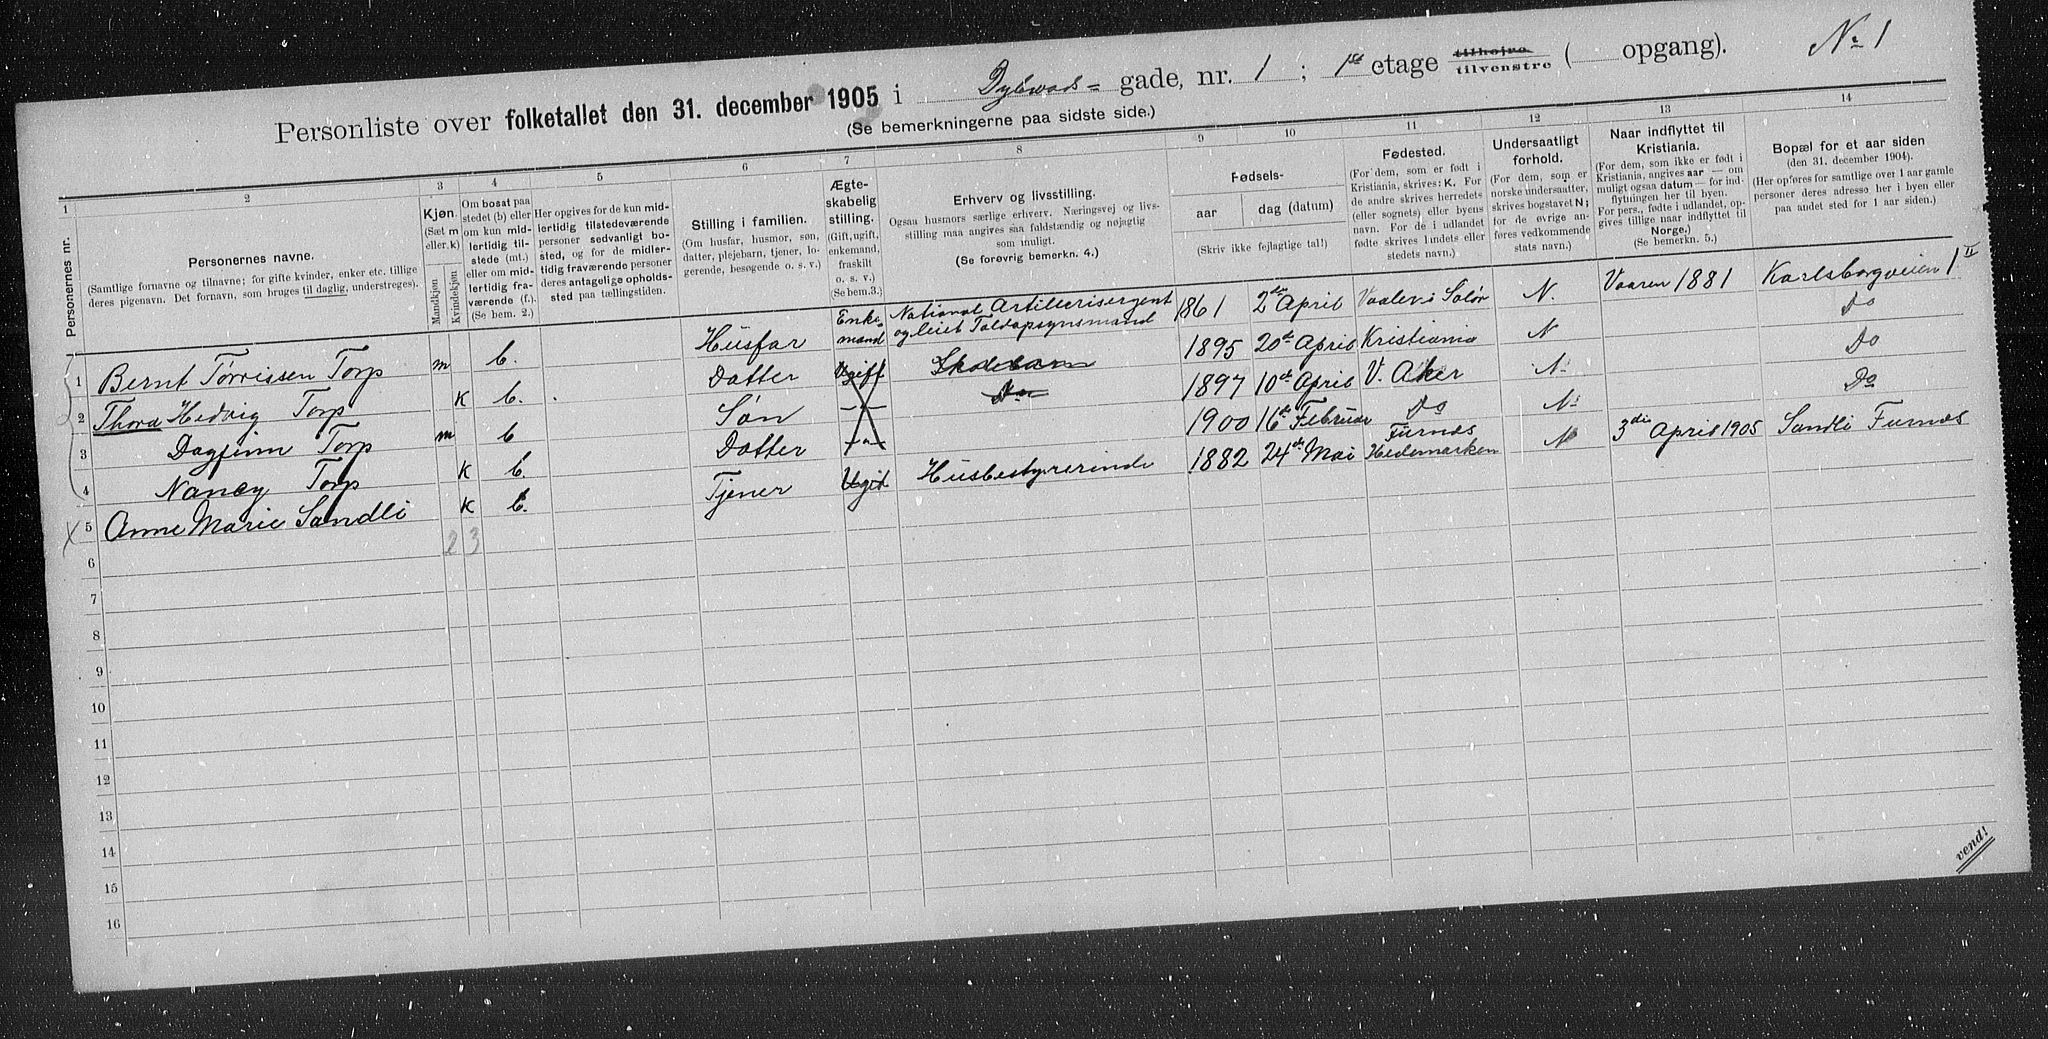 Personliste over folketallet den 31. december 1905 i Dybwads= gade, nr. 1 ; 1ste etage tilhøjre tilvenstre ( opgang). No 1
(Se bemerkningerne paa sidste side.)
1 2 3 4 5 6 7 8 9 10 11 12 13 14
Personernes nr.
Personernes navne.
(Samtlige fornavne og tilnavne; for gifte kvinder, enker etc. tillige
deres pigenavn. Det fornavn, som bruges til daglig, understreges).
Kjøn.
(Sæt m
eller k)
Mandkjøn
Kvindekjøn
Om bosat paa
stedet (b) eller
om kun mid-
lertidig til-
stede (mt.)
eller om mid-
lertidig fra-
værende (f.).
(Se bem. 2.)
Her opgives for de kun mid-
lertidig tilstedeværende
personer sedvanligt bo-
sted, og for de midler-
tidig fraværende personer
deres antagelige opholds-
sted paa tællingstiden.
Stilling i familien.
(Om husfar, husmor, søn,
datter, plejebarn, tjener, lo-
gerende, besøgende o. s. v.)
Ægte-
skabelig
stilling.
(Gift, ugift,
enkemand,
fraskilt
o. s. v.)
(Se bem.3.)
Erhverv og livsstilling.
Ogsaa husmors særlige erhverv. Næringsvej og livs-
stilling maa angives saa fuldstændig og nøjagtig
som muligt.
(Se forøvrig bemerkn. 4.)
Fødsels-
aar dag (datum)
(Skriv ikke fejlagtige tal!)
Fødested.
(For dem, som er født i
Kristiania, skrives: K. For
de andre skrives herredets
(eller sognets) eller byens
navn. For de i udlandet
fødte skrives landets eller
stedets navn.)
Undersaatligt
forhold.
(For dem, som er
norske undersaatter,
skrives bogstavet N;
for de øvrige an-
føres vedkommende
stats navn.)
Naar indflyttet til
Kristiania.
(For dem, som ikke er født i
Kristiania, angives aar — om
muligt ogsaa datum — for ind-
flytningen her til byen.
For pers., fødte i udlandet, op-
gives tillige naar indflyttet til
Norge.)
(Se bemerkn. 5.)
Bopæl for et aar siden
(den 31. december 1904).
(Her opføres for samtlige over 1 aar gamle
personer deres adresse her i byen eller
paa andet sted for 1 aar siden.)
1 Bernt Torrissen Torp m b. Husfar Enke= mand National Artillerisergent og leiet Toldopsynsmand 1861 2den April Vaaler i Solør N. Vaaren 1881 Karlsborgveien 1 II
2 Thora Hedvig Torp K b. Datter Ugift Skolebarn 1895 20de April Kristiania N Do
3 Dagfinn Torp m b Søn -"- Do 1897 10de April V. Aker N. Do
4 Nancy Torp K b. Datter -"- 1900 16de Februar Do N. Do
5 Anne Marie Sandli K b. Tjener Ugift Husbestyrerinde 1882 24de Mai Furnes Hedemarken N 3die April 1905 Sandli Furnes
2 3
6
7
8
9
10
11
12
13
14
15
16
vend!